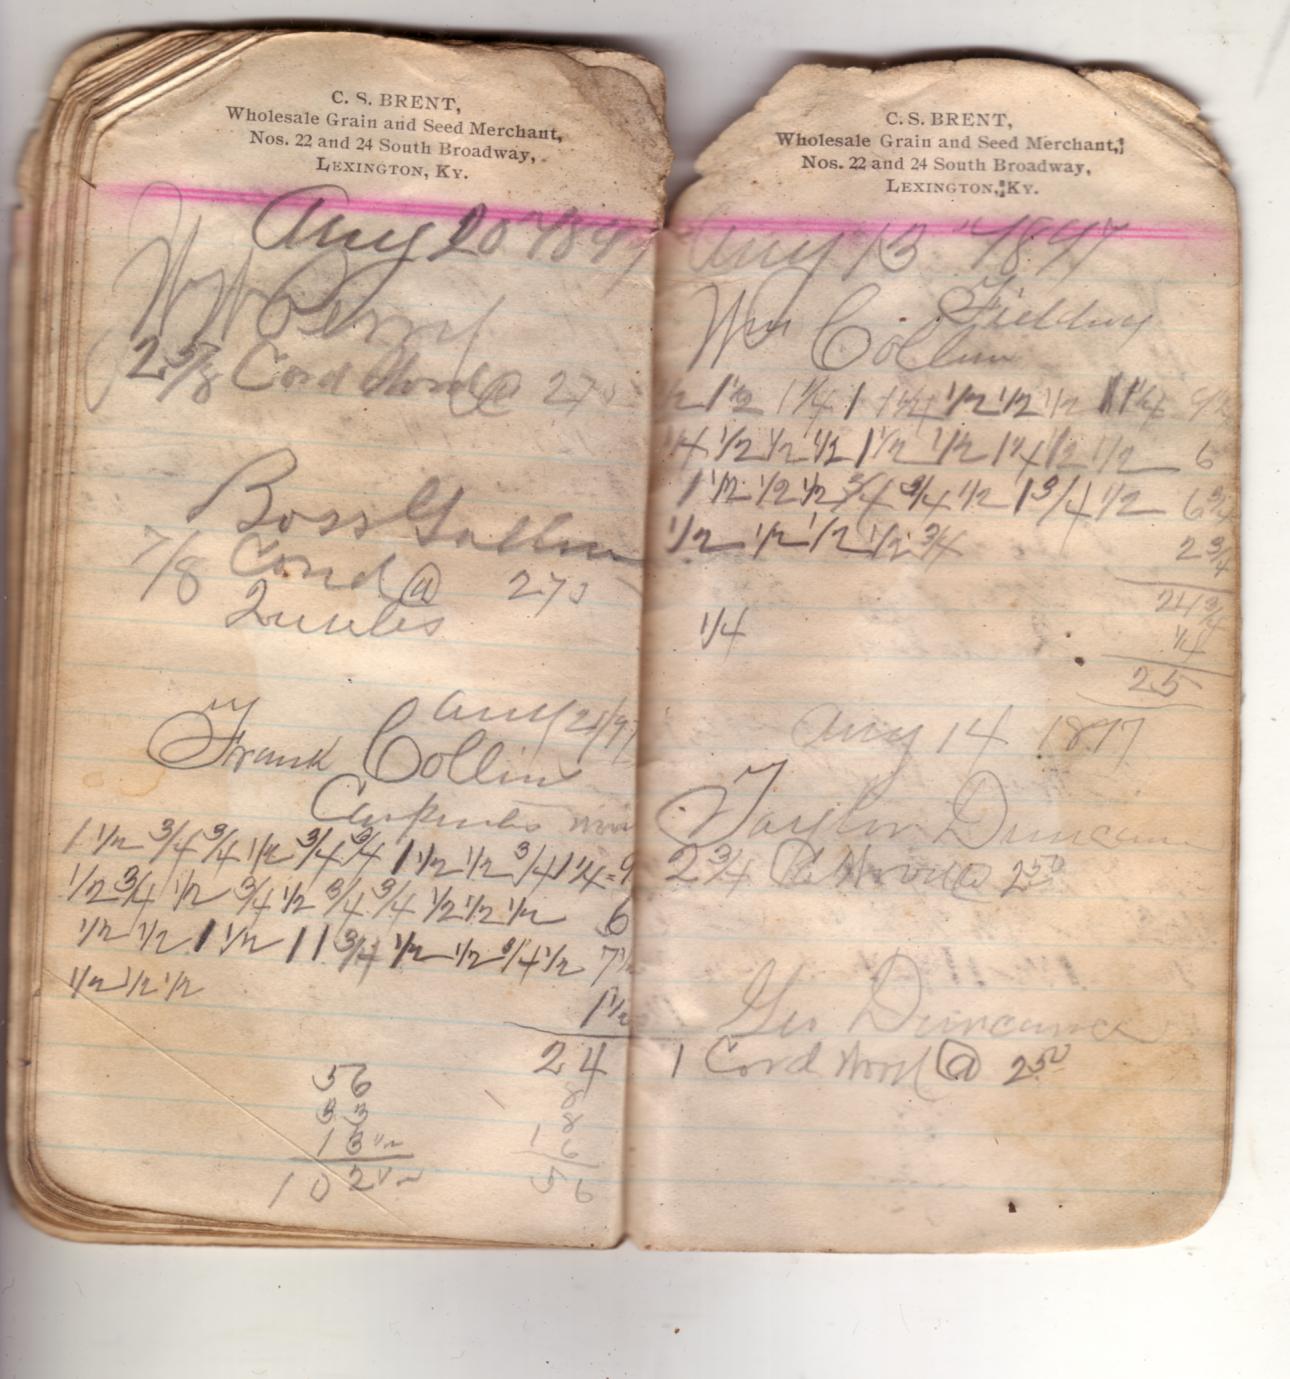 C. S. BRENT,
Wholesale Grain and Seed Merchant,
Nos. 22 and 24 South Broadway,
LEXINGTON, KY.
Aug 20 1897
W W Perry
2 5/8 Cord Wood @ 275
Boss Gallin
7/8 Cord @ 275
Aug 21/97
Frank Collin
1 1/2 3/4 3/4 1/2 3/4 3/4 1 1/2 1/2 3/4 1 1/4 = 9
1/2 3/4 1/2 3/4 1/2 3/4 3/4 1/2 1/2 1/2 6
1/2 1/2 1 1/2 1 1 3/4 1/2 1/2 3/4 1/2 7 1/2
1/2 1/2 1/2
1 1/2
24
56
33
13 1/2
102 1/2
8
8
1 6
56
C. S. BRENT,
Wholesale Grain and Seed Merchant,
Nos. 22 and 24 South Broadway,
LEXINGTON, KY.
Aug 13 1897
Fielding
Wm Collin
1/2 1 1/2 1 1/4 1 1 1/4 1/2 1/2 1/2 1 1 1/4 9 1/2
1/4 1/2 1/2 1/2 1 1/2 1/2 1/4 1/2 1/2 6
1 1/2 1/2 1/2 3/4 3/4 1/2 1 3/4 1/2 6 3/4
1/2 1/2 1/2 1/2 3/4 2 3/4
24 3/4
1/4 1/4
25
Aug 14 1897
Taylor Duncan
2 3/4 C Wood @ 250
Geo Duncan
1 Cord Wood @ 250